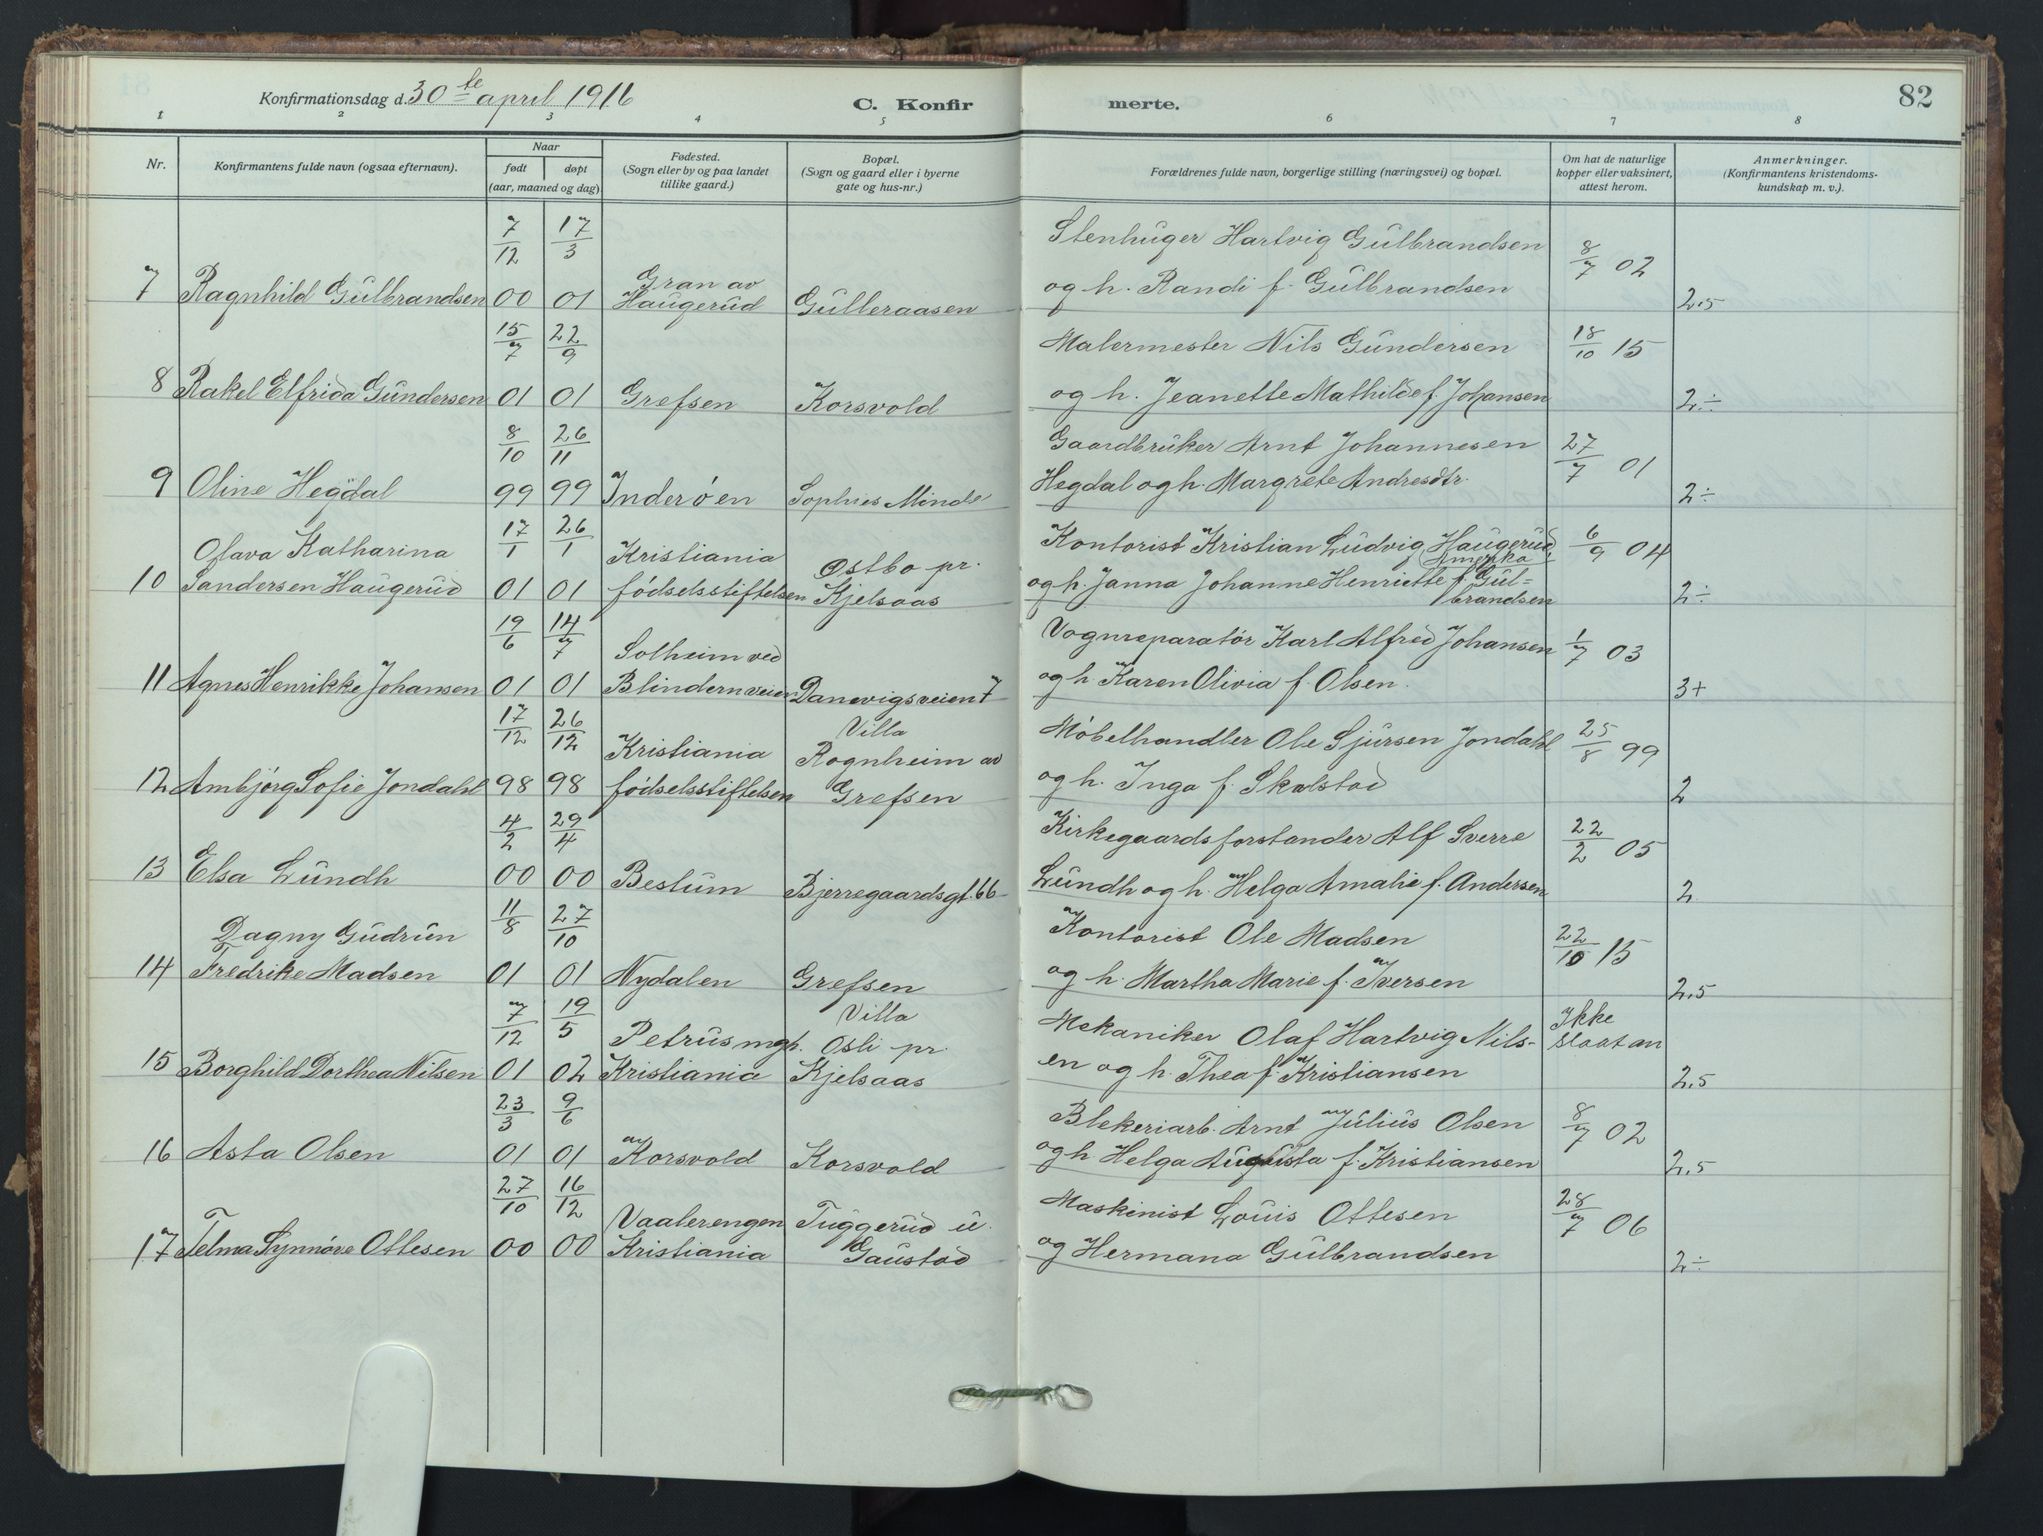 Konfirmationsdag d. 30te april 1916
C. Konfirmerte.
82
1 2 3 4 5 6 7 8
Nr.
Konfirmantens fulde navn (ogsaa efternavn).
Naar
født døpt
(aar, maaned og dag)
Fødested.
(Sogn eller by og paa landet
tillike gaard.)
Bopæl.
(Sogn og gaard eller i byerne
gate og hus-nr.)
Forældrenes fulde navn, borgerlige stilling (næringsvei) og bopæl.
Om hat de naturlige
kopper eller vaksinert,
attest herom.
Anmerkninger.
(Konfirmantens kristendoms-
kundskap m. v.).
7/12 17/3 Stenhuger Hartvig Gulbrandsen 8/7 02
7 Ragnhild Gulbrandsen 00 01 Gran av
Haugerud Gulleraasen og h. Randi f. Gulbrandsen 2.5
15/7 22/9 Malermester Nils Gundersen 18/10 15
8 Rakel Elfrida Gundersen 01 01 Grefsen Korsvold og h. Jeanette Mathilde f. Johansen 2÷
8/10 26/11 Gaardbruker Arnt Johannesen 27/7 01
9 Oline Hegdal 99 99 Inderøen Sophies Minde Hegdal og h. Margrete Andresdtr. 2÷
17/1 26/1 Kontorist Kristian Ludvig Haugerud 6/9 04
Amerika
Olava Katharina Kristiania Ostbo pr.
10 Sandersen Haugerud 01 01 fødselsstiftelsen Kjelsaas og h. Janna Johanne Henriette f. Gul-
brandsen 2÷
19/6 14/7 Solheim ved Vognreparatør Karl Alfred Johansen 1/7 03
11 Agnes Henrikke Johansen 01 01 Blindernveien Danevigsveien 7 og h. Karen Olivia f. Olsen. 3+
17/12 26/12 Kristiania Villa
Rognheim av Møbelhandler Ole Sjursen Jondahl 25/8 99
12 Ambjørg Sofie Jondahl 98 98 fødselsstiftelsen Grefsen og h. Inga f. Skalstad 2
4/2 29/4 Kirkegaardsforstander Alf Sverre 22/2 05
13 Elsa Lundh 00 00 Bestum Bjerregaardsgt. 66 Lundh og h. Helga Amalie f. Andersen 2
11/8 27/10 Kontorist Ole Madsen 22/10 15
Dagny Gudrun
14 Fredrike Madsen 01 01 Nydalen Grefsen og h. Martha Marie f. Iversen 2,5
7/12 19/5 Petrus mgh. Villa
Osli pr. Mekaniker Olaf Hartvig Nils- Ikke
slaat an
15 Borghild Dorthea Nilsen 01 02 Kristiania Kjelsaas en og h. Thea f. Kristiansen 2,5
23/3 9/6 Blekeriarb. Arnt Julius Olsen 8/7 02
16 Asta Olsen 01 01 Korsvold Korsvold og h. Helga Augusta f. Kristiansen 2,5
27/10 16/12 Vaalerengen Tuggerud u. Maskinist Louis Ottesen 28/7 06
17 Telma Synnøve Ottesen 00 00 Kristiania Gaustad og Hermana Gulbrandsen 2÷